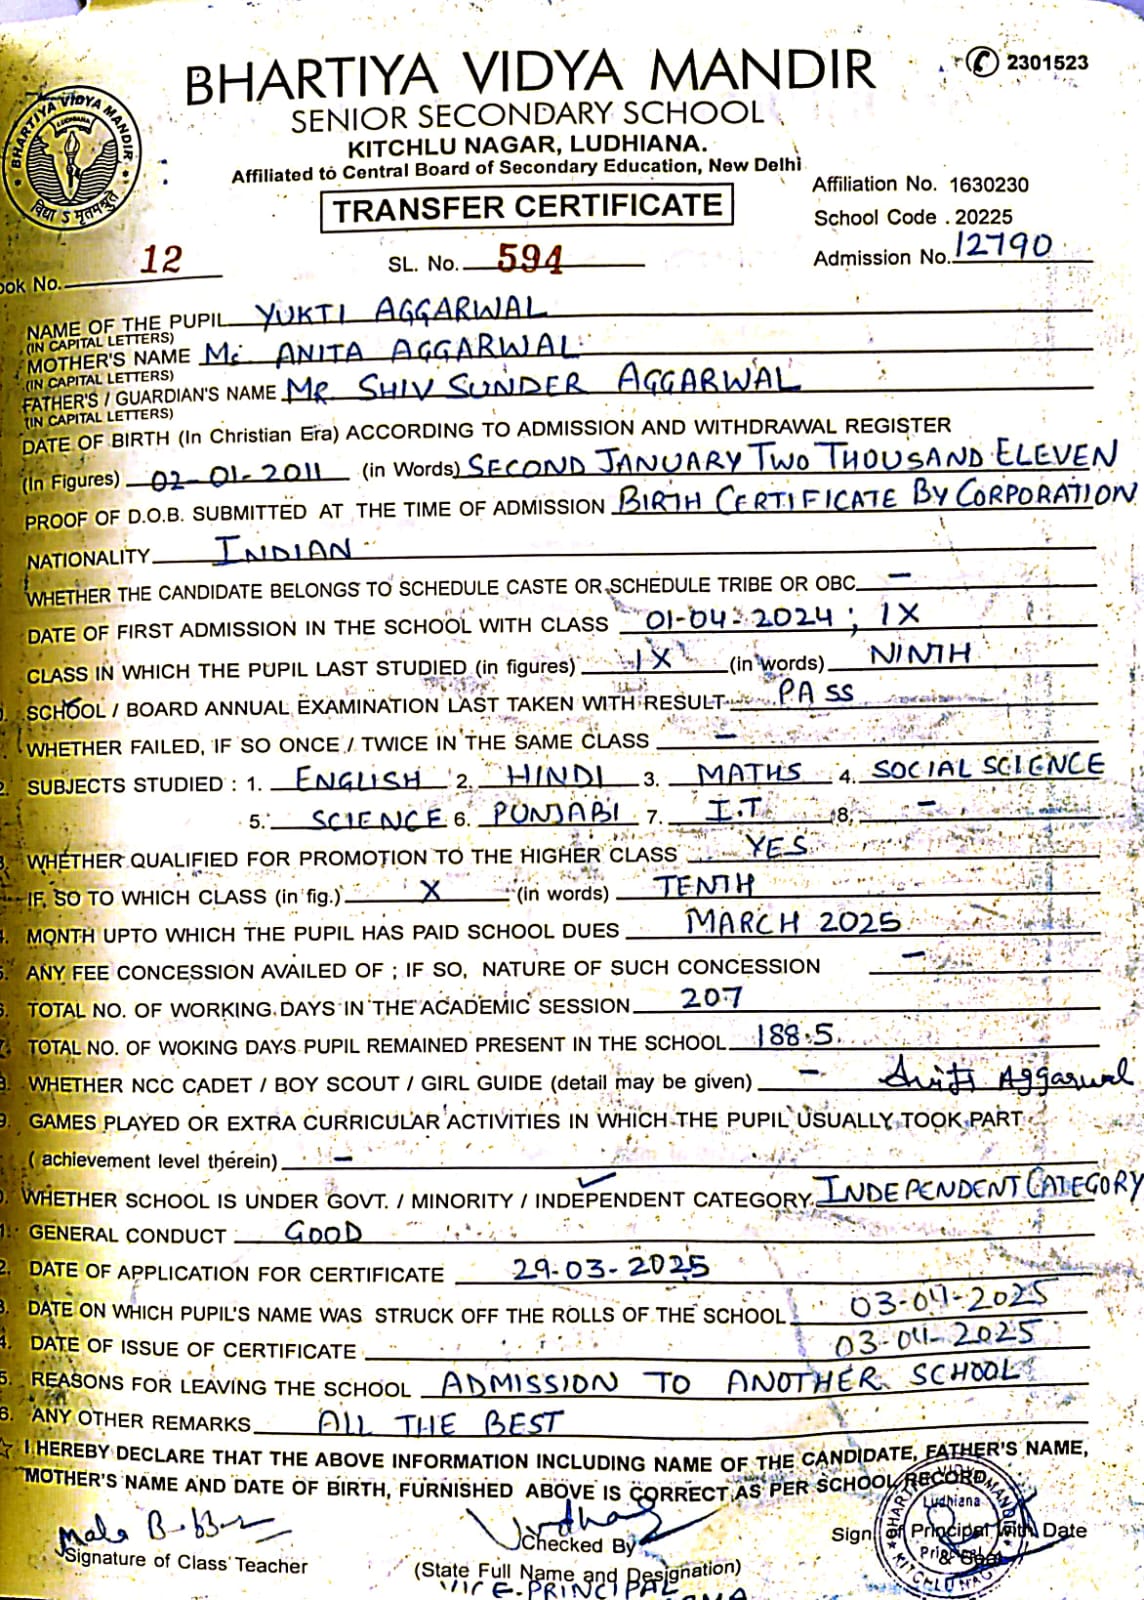 BHARTIYA VIDYA MANDIR
2301523
SENIOR SECONDARY SCHOOL
KITCHLU NAGAR, LUDHIANA.
Affiliated to Central Board of Secondary Education, New Delhi
BHARTIYA VIDYA MANDIR
LUDHIANA
विद्या S मृतमश्नुते
TRANSFER CERTIFICATE
Affiliation No. 1630230
School Code . 20225
Admission No. 12790
ok No. 12 SL. No. 594
NAME OF THE PUPIL YUKTI AGGARWAL
(IN CAPITAL LETTERS)
MOTHER'S NAME ANITA AGGARWAL
(IN CAPITAL LETTERS)
FATHER'S / GUARDIAN'S NAME MR. SHIV SUNDER AGGARWAL
(IN CAPITAL LETTERS)
DATE OF BIRTH (In Christian Era) ACCORDING TO ADMISSION AND WITHDRAWAL REGISTER
(In Figures) 02-01-2011 (in Words) SECOND JANUARY TWO THOUSAND ELEVEN
PROOF OF D.O.B. SUBMITTED AT THE TIME OF ADMISSION BIRTH CERTIFICATE BY CORPORATION
NATIONALITY INDIAN
WHETHER THE CANDIDATE BELONGS TO SCHEDULE CASTE OR SCHEDULE TRIBE OR OBC —
DATE OF FIRST ADMISSION IN THE SCHOOL WITH CLASS 01-04-2024 ; IX
CLASS IN WHICH THE PUPIL LAST STUDIED (in figures) IX (in words) NINTH
SCHOOL / BOARD ANNUAL EXAMINATION LAST TAKEN WITH RESULT PASS
WHETHER FAILED, IF SO ONCE / TWICE IN THE SAME CLASS —
SUBJECTS STUDIED : 1. ENGLISH 2. HINDI 3. MATHS 4. SOCIAL SCIENCE
5. SCIENCE 6. PUNJABI 7. I.T 8. —
WHETHER QUALIFIED FOR PROMOTION TO THE HIGHER CLASS YES
IF, SO TO WHICH CLASS (in fig.) X (in words) TENTH
MONTH UPTO WHICH THE PUPIL HAS PAID SCHOOL DUES MARCH 2025
ANY FEE CONCESSION AVAILED OF ; IF SO, NATURE OF SUCH CONCESSION —
TOTAL NO. OF WORKING DAYS IN THE ACADEMIC SESSION 207
TOTAL NO. OF WOKING DAYS PUPIL REMAINED PRESENT IN THE SCHOOL 188.5
WHETHER NCC CADET / BOY SCOUT / GIRL GUIDE (detail may be given) — Anita Aggarwal
GAMES PLAYED OR EXTRA CURRICULAR ACTIVITIES IN WHICH THE PUPIL USUALLY TOOK PART
( achievement level therein) —
WHETHER SCHOOL IS UNDER GOVT. / MINORITY / INDEPENDENT CATEGORY. INDEPENDENT CATEGORY
GENERAL CONDUCT GOOD
DATE OF APPLICATION FOR CERTIFICATE 29-03-2025
DATE ON WHICH PUPIL'S NAME WAS STRUCK OFF THE ROLLS OF THE SCHOOL 03-04-2025
DATE OF ISSUE OF CERTIFICATE 03-04-2025
REASONS FOR LEAVING THE SCHOOL ADMISSION TO ANOTHER SCHOOL
ANY OTHER REMARKS ALL THE BEST
I HEREBY DECLARE THAT THE ABOVE INFORMATION INCLUDING NAME OF THE CANDIDATE, FATHER'S NAME,
MOTHER'S NAME AND DATE OF BIRTH, FURNISHED ABOVE IS CORRECT AS PER SCHOOL RECORD.
Signature of Class Teacher
Checked By
(State Full Name and Designation)
VICE-PRINCIPAL
Sign of Principal with Date
& Seal
Ludhiana
KITCHLU NAGAR